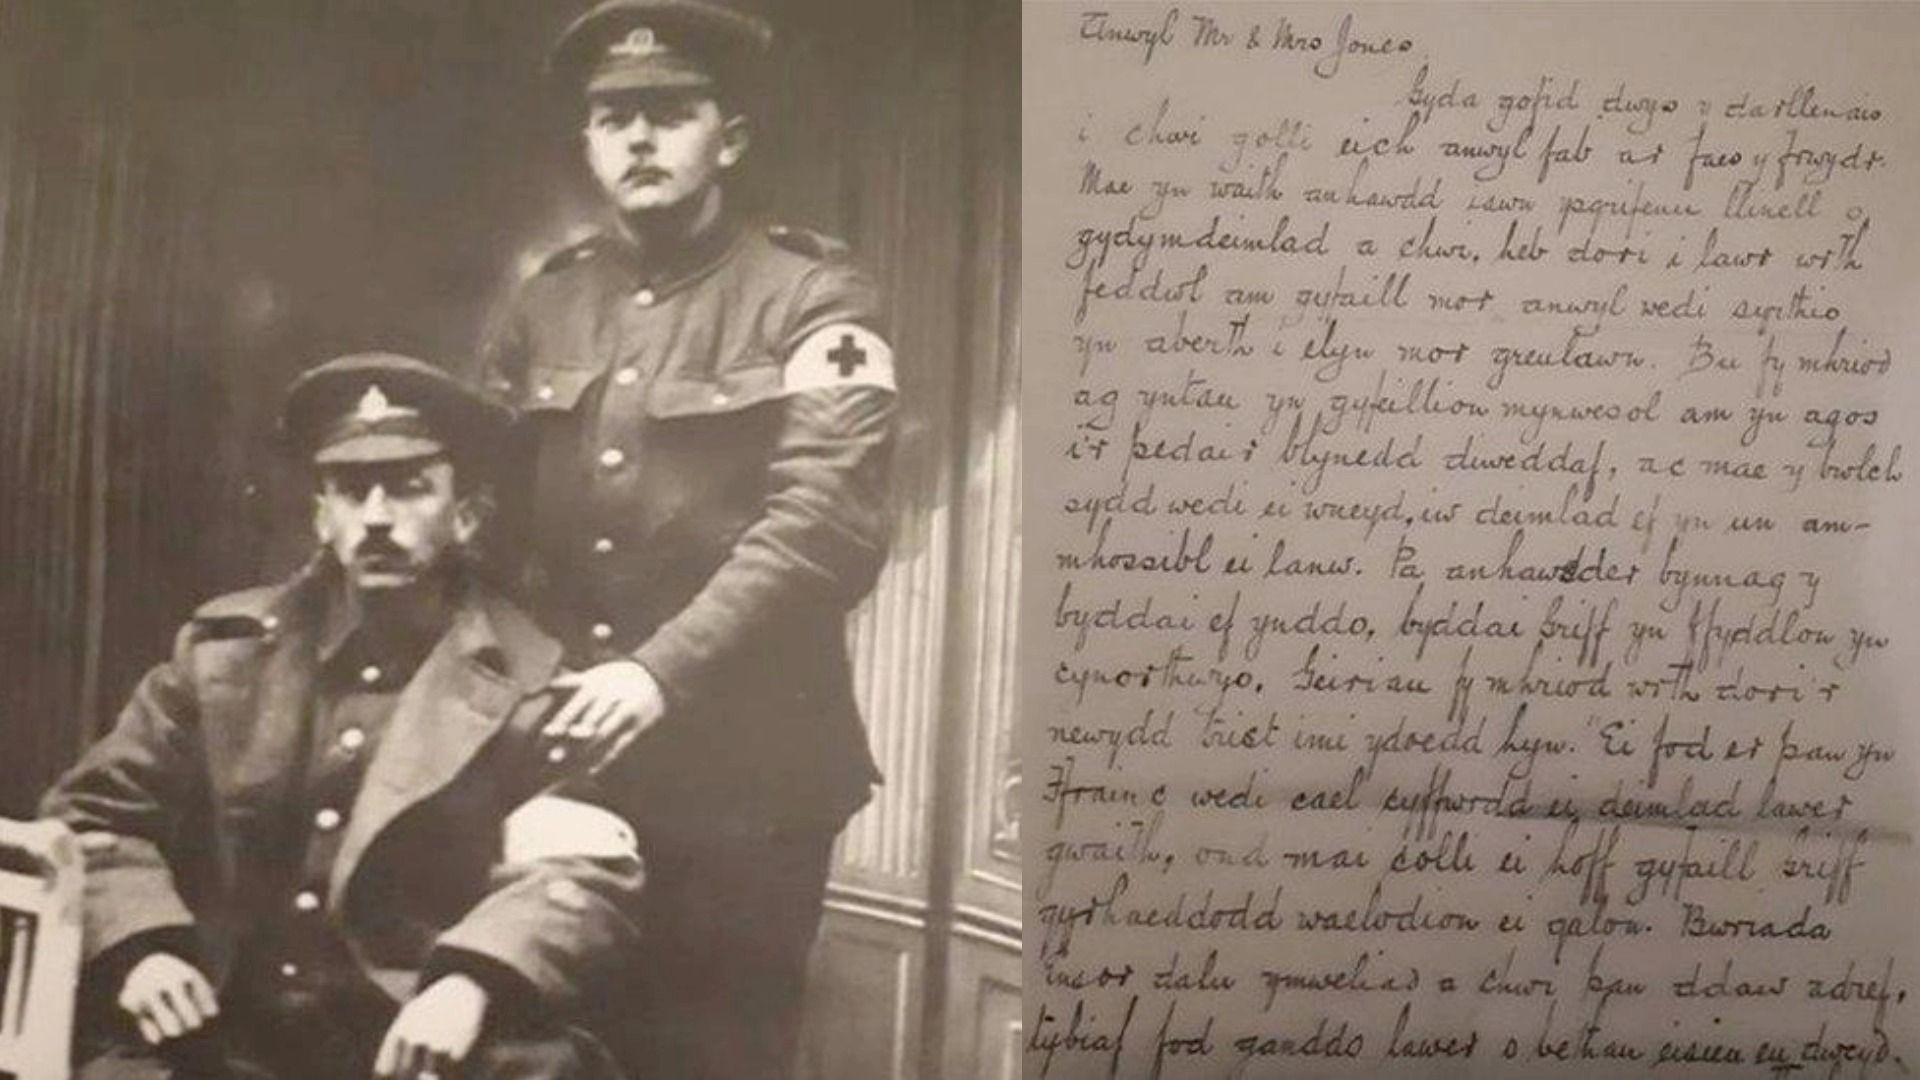 Anwyl Mr & Mrs Jones,
Gyda gofid dwys y darllenais
i chwi golli eich anwyl fab ar faes y frwydr.
Mae yn waith anhawdd iawn ysgrifenu llinell o
gydymdeimlad a chwi, heb dori i lawr wrth
feddwl am gyfaill mor anwyl wedi syrthio
yn aberth i elyn mor greulawn. Bu fy mhriod
ag yntau yn gyfeillion mynwesol am yn agos
i'r pedair blynedd diweddaf, ac mae y bwlch
sydd wedi ei wneyd, iw deimlad ef yn un am-
mhossibl ei lanw. Pa anhawdder bynnag y
byddai ef ynddo, byddai Griff yn ffyddlon yn
cynorthwyo. Geiriau fy mhriod wrth dori'r
newydd trist imi ydoedd hyn. "Ei fod er pan yn
Ffrainc wedi cael cyffwrdd ei deimlad lawer
gwaith, ond mai colli ei hoff gyfaill Griff
gyrhaeddodd waelodion ei galon. Bwriada
Ensor dalu ymweliad a chwi pan ddaw adref,
tybiaf fod ganddo lawer o bethau eisieu eu dweyd.